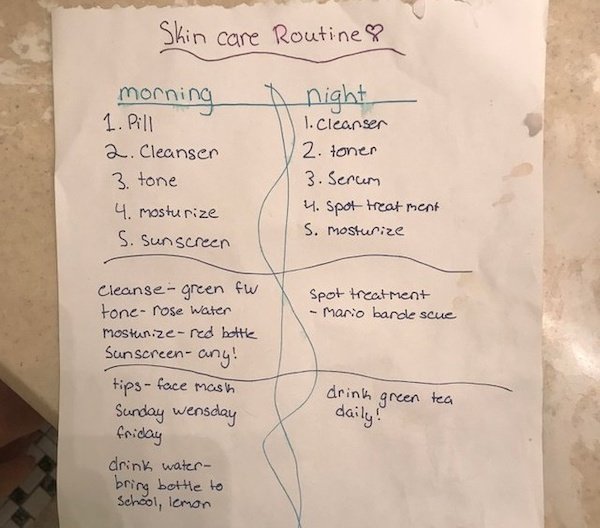 Skin care Routine
morning
1. Pill
2. Cleanser
3. tone
4. mosturize
5. sunscreen
night
1. Cleanser
2. toner
3. Serum
4. Spot treatment
5. mosturize
Cleanse- green fw
tone- rose water
mosturize- red bottle
Sunscreen- any!
Spot treatment
- Mario bande scue
tips- face mask
Sunday wensday
friday
drink water-
bring bottle to
school, lemon
drink green tea
daily!